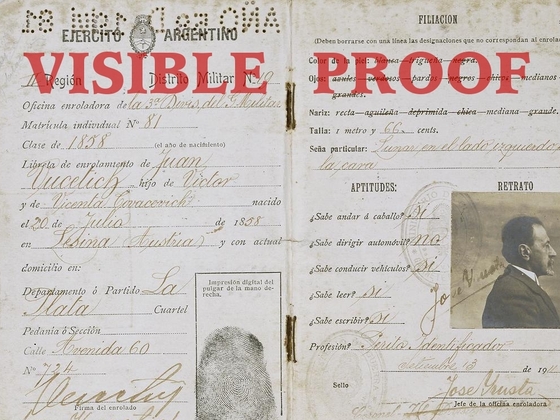 VISIBLE PROOF
EJÉRCITO ARGENTINO
Región Distrito Militar N.º 19
Oficina enroladora de la 3ª
Matrícula individual Nº 81
Clase de 1858 (el año de nacimiento)
Libreta de enrolamiento de Juan
Vucetich hijo de Victor
y de Vicenta Covacevich nacido
el 20 de Julio de 1858
en Lesina (Austria) y con actual
domicilio en:
Departamento ó Partido La
Plata Cuartel
Pedanía ó Sección
Calle Avenida 60
Nº 734
Firma del enrolado
Impresión digital del
pulgar de la mano de-
recha.
FILIACION
(Deben borrarse con una línea las designaciones que no correspondan al enrola
Color de la piel: blanca trigueña negra.
Ojos: azules verdosos pardos negros chicos medianos
grandes.
Nariz: recta aguileña deprimida chica mediana grande.
Talla: 1 metro y 66 cents.
Seña particular: Lunar en el lado izquierdo
la cara
APTITUDES: RETRATO
¿Sabe andar á caballo? Si
¿Sabe dirigir automóvil? no
¿Sabe conducir vehículos? Si
¿Sabe leer? Si
¿Sabe escribir? Si
Profesión? Perito Identificador
Setiembre 13 de 191
Sello
Jefe de la oficina enroladora